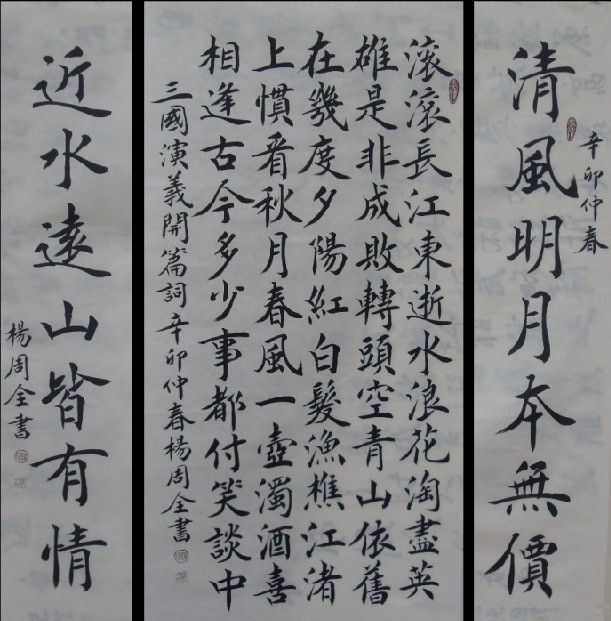 辛卯仲春
清風明月本無價
滾滾長江東逝水浪花淘盡英
雄是非成敗轉頭空青山依舊
在幾度夕陽紅白髮漁樵江渚
上慣看秋月春風一壺濁酒喜
相逢古今多少事都付笑談中
三國演義開篇詞辛卯仲春楊周全書
近水遠山皆有情
楊周全書